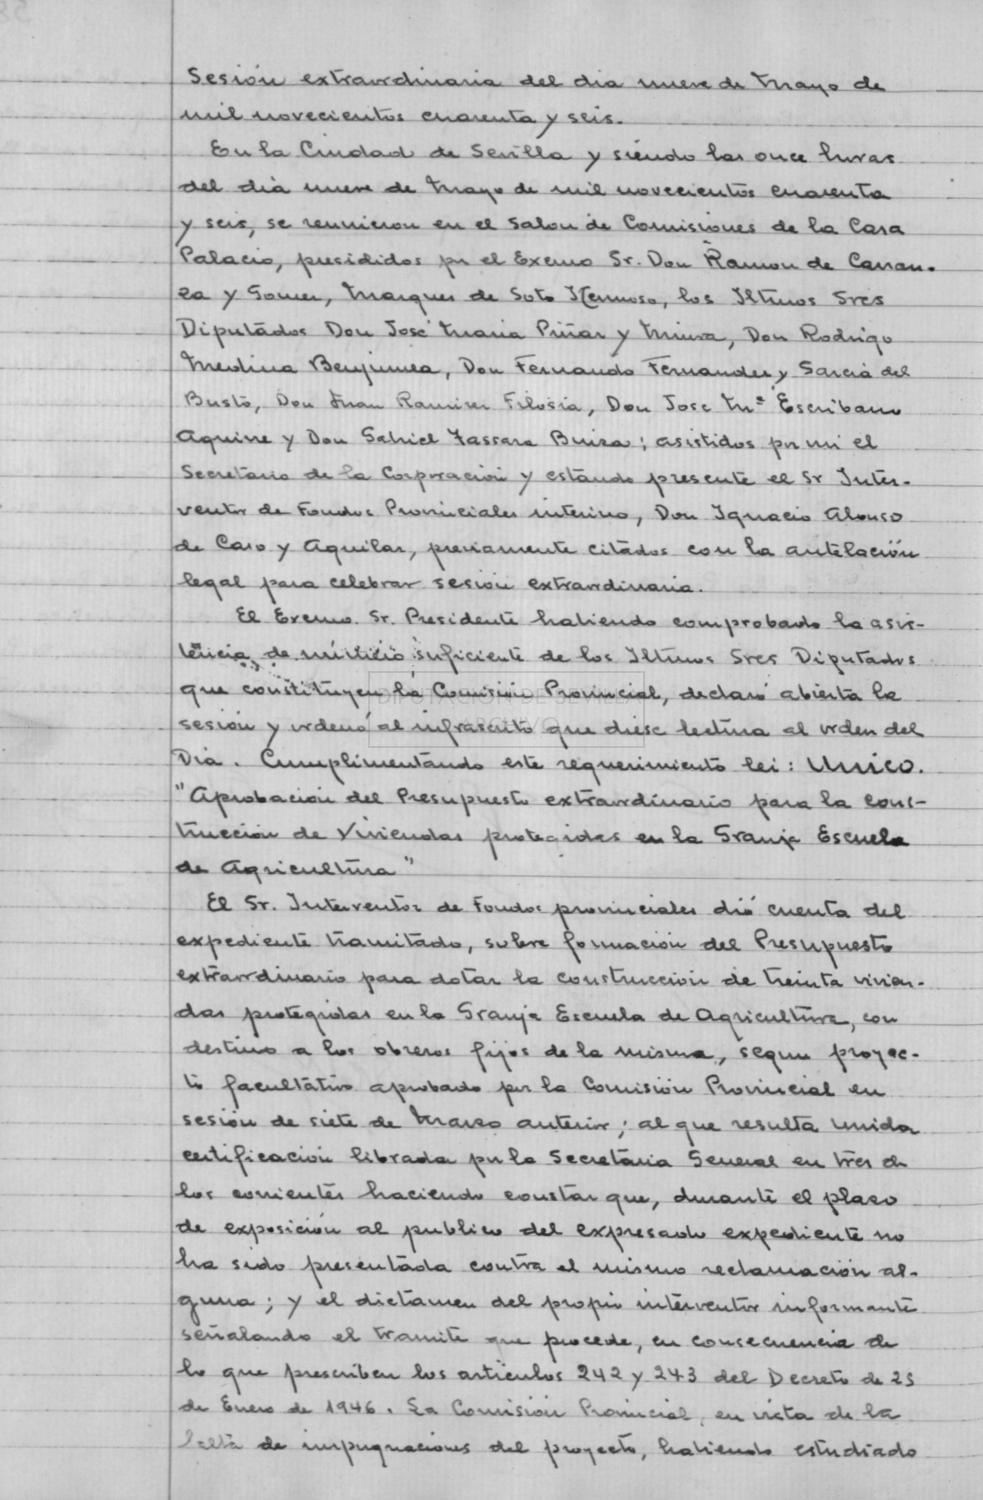 Sesión extraordinaria del dia nueve de Mayo de
mil novecientos cuarenta y seis.
En la Ciudad de Sevilla y siendo las once horas
del dia nueve de Mayo de mil novecientos cuarenta
y seis, se reunieron en el Salon de Comisiones de la Casa
Palacio, presididos por el Excmo Sr. Don Ramon de Carran-
za y Gomez, Marques de Soto Hermoso, los Iltmos Sres
Diputados Don José Maria Piñar y Miura, Don Rodrigo
Medina Benjumea, Don Fernando Fernandez y Garcia del
Busto, Don Juan Ramirez Filosia, Don Jose Mª Escribano
Aguirre y Don Gabriel Tassara Buiza; asistidos por mi el
Secretario de la Corporación y estando presente el Sr Inter-
ventor de Fondos Provinciales interino, Don Ignacio Alonso
de Caso y Aguilar, previamente citados con la antelación
legal para celebrar sesión extraordinaria.
El Excmo. Sr. Presidente habiendo comprobado la asis-
tencia de número suficiente de los Iltmos Sres Diputados
que constituyen la Comisión Provincial, declaró abierta la
sesión y ordenó al infrascrito que diese lectura al orden del
Dia. Cumplimentando este requerimiento lei: Unico.
"Aprobación del Presupuesto extraordinario para la cons-
trucción de Viviendas protegidas en la Granja Escuela
de Agricultura"
El Sr. Interventor de Fondos provinciales dió cuenta del
expediente tramitado, sobre formación del Presupuesto
extraordinario para dotar la construcción de treinta vivien-
das protegidas en la Granja Escuela de Agricultura, con
destino a los obreros fijos de la misma, segun proyec-
to facultativo aprobado por la Comisión Provincial en
sesión de siete de Marzo anterior; al que resulta unida
certificación librada por la Secretaria General en tres de
los corrientes haciendo constar que, durante el plazo
de exposición al publico del expresado expediente no
ha sido presentada contra el mismo reclamación al-
guna; y el dictamen del propio interventor informante
señalando el tramite que procede, en consecuencia de
lo que prescriben los artículos 242 y 243 del Decreto de 25
de Enero de 1946. La Comisión Provincial, en vista de la
falta de impugnaciones del proyecto, habiendo estudiado
DIPUTACIÓN DE SEVILLA
ARCHIVO